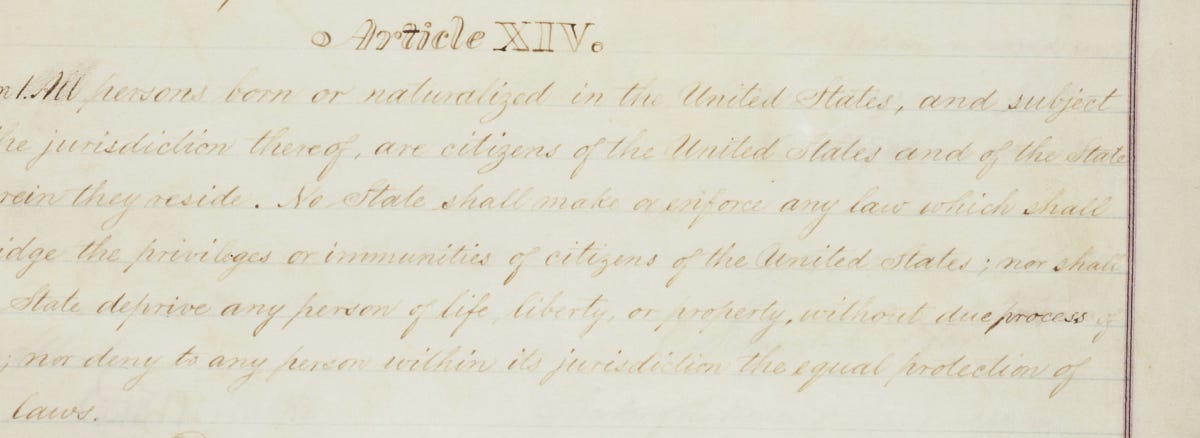 Article XIV.
n 1. All persons born or naturalized in the United States, and subject
he jurisdiction thereof, are citizens of the United States and of the State
rein they reside. No State shall make or enforce any law which shall
idge the privileges or immunities of citizens of the United States; nor shall
State deprive any person of life, liberty, or property, without due process of
; nor deny to any person within its jurisdiction the equal protection of
laws.